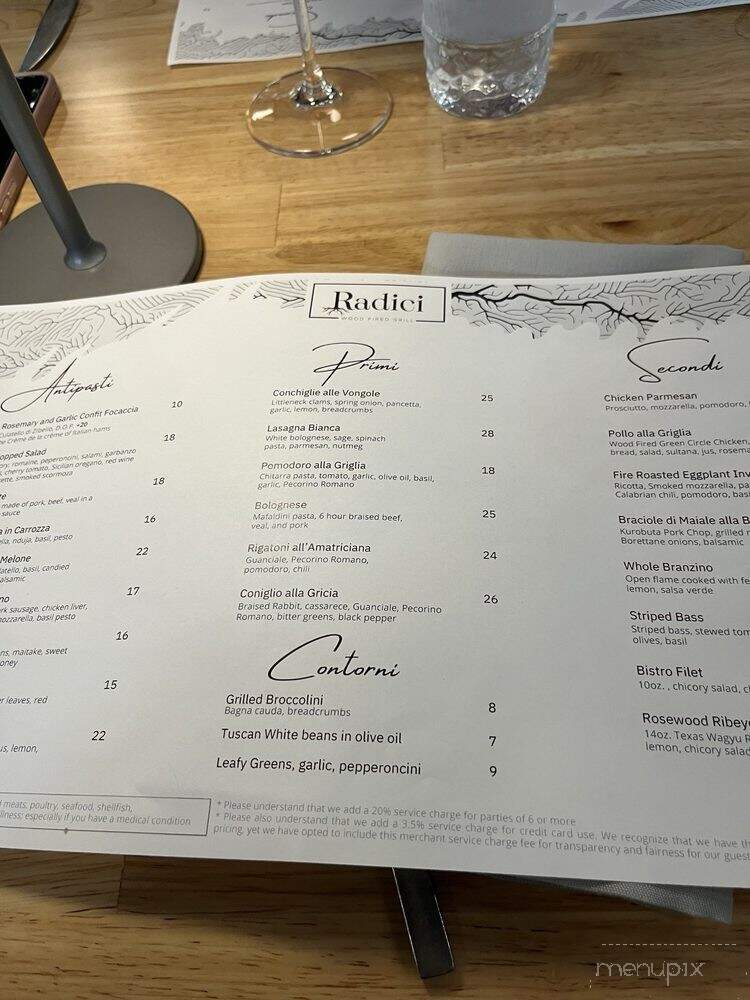 Radici
WOOD FIRED GRILL
Antipasti
Rosemary and Garlic Confit Focaccia 10
Culatello di Zibello, D.O.P. +20
Crème de la crème of Italian hams
opped Salad 18
romaine, peperoncini, salami, garbanzo
cherry tomato, Sicilian oregano, red wine
smoked scormoza
18
made of pork, beef, veal in a
sauce
in Carrozza 16
nduja, basil, pesto
Melone 22
basil, candied
balsamic
17
sausage, chicken liver,
mozzarella, basil pesto
16
maitake, sweet
honey
15
leaves, red
22
lemon,
Primi
Conchiglie alle Vongole 25
Littleneck clams, spring onion, pancetta,
garlic, lemon, breadcrumbs
Lasagna Bianca 28
White bolognese, sage, spinach
pasta, parmesan, nutmeg
Pomodoro alla Griglia 18
Chitarra pasta, tomato, garlic, olive oil, basil,
garlic, Pecorino Romano
Bolognese 25
Mafaldini pasta, 6 hour braised beef,
veal, and pork
Rigatoni all'Amatriciana 24
Guanciale, Pecorino Romano,
pomodoro, chili
Coniglio alla Gricia 26
Braised Rabbit, cassarece, Guanciale, Pecorino
Romano, bitter greens, black pepper
Contorni
Grilled Broccolini 8
Bagna cauda, breadcrumbs
Tuscan White beans in olive oil 7
Leafy Greens, garlic, pepperoncini 9
Secondi
Chicken Parmesan
Prosciutto, mozzarella, pomodoro,
Pollo alla Griglia
Wood Fired Green Circle Chicken,
bread, salad, sultana, jus,
Fire Roasted Eggplant
Ricotta, Smoked mozzarella,
Calabrian chili, pomodoro,
Braciole di Maiale alla
Kurobuta Pork Chop, grilled
Borettane onions, balsamic
Whole Branzino
Open flame cooked with
lemon, salsa verde
Striped Bass
Striped bass, stewed
olives, basil
Bistro Filet
10oz. , chicory salad,
Rosewood Ribeye
14oz. Texas Wagyu
lemon, chicory salad
meats, poultry, seafood, shellfish,
illness; especially if you have a medical condition
* Please understand that we add a 20% service charge for parties of 6 or more
* Please also understand that we add a 3.5% service charge for credit card use. We recognize that we have
pricing, yet we have opted to include this merchant service charge fee for transparency and fairness for our
menupix